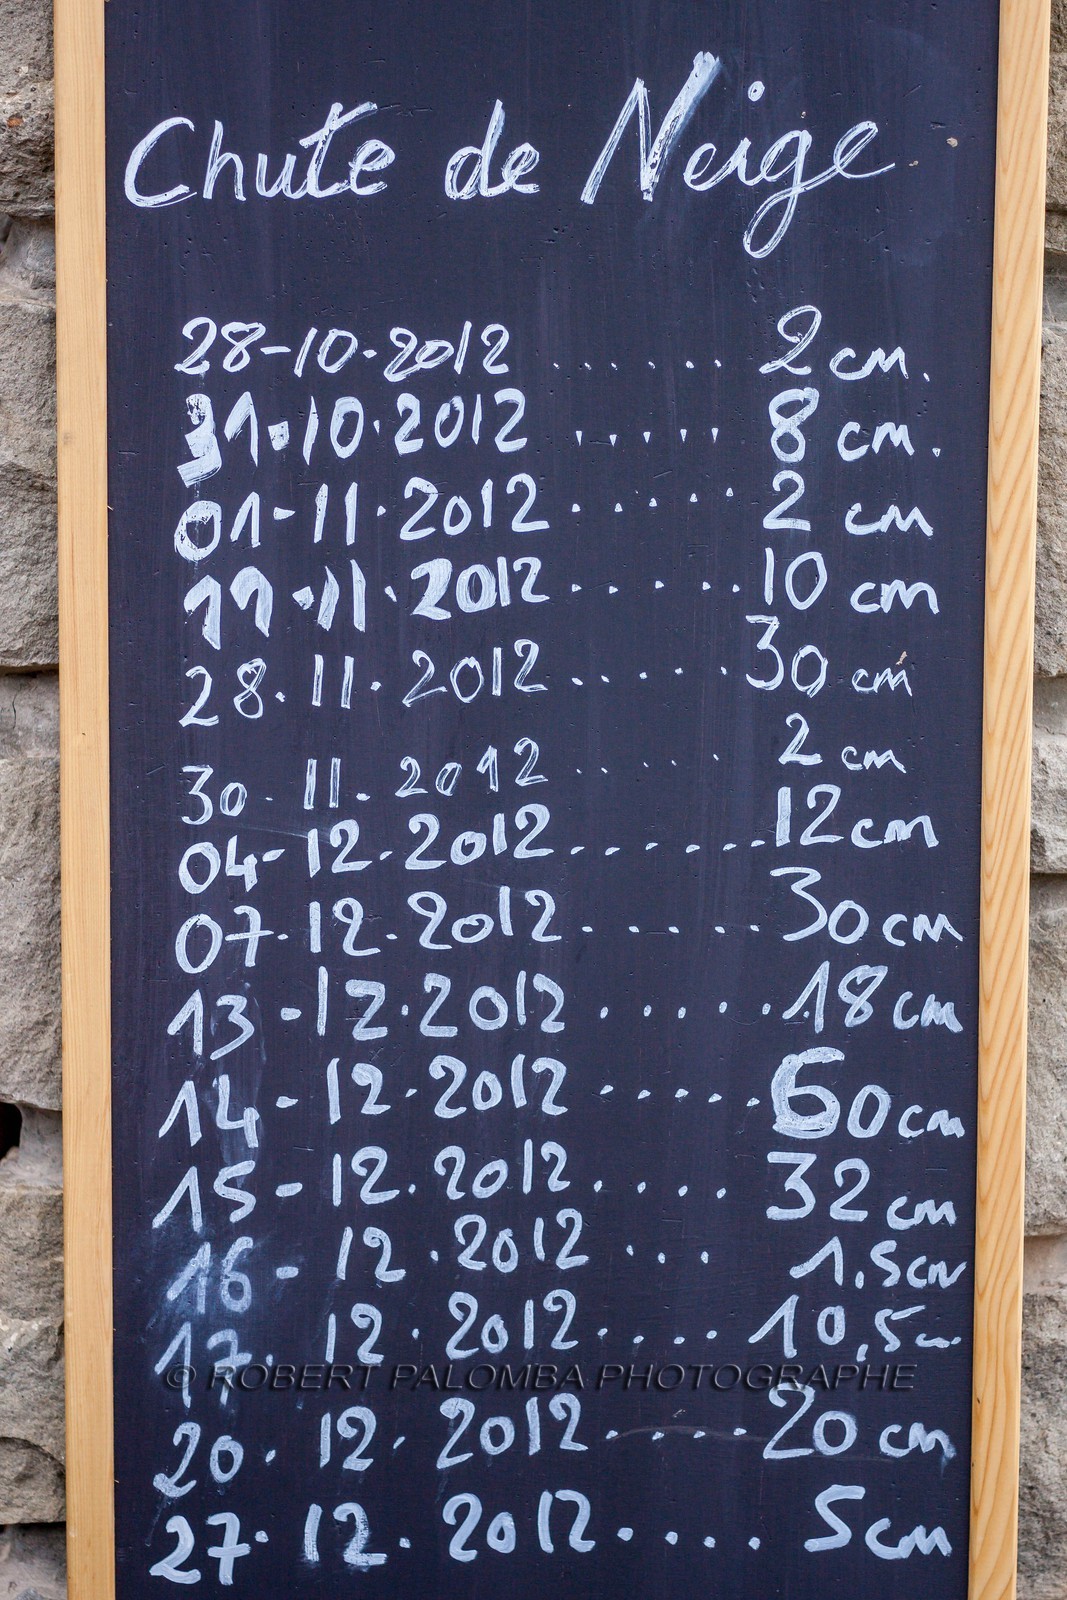 Chute de Neige
28-10.2012 ...... 2 cm.
31.10.2012 ..... 8 cm.
01-11.2012 ..... 2 cm
11.11.2012 ..... 10 cm
28.11.2012 ..... 30 cm
30.11.2012 ..... 2 cm
04-12.2012 ...... 12 cm
07.12.2012 ..... 30 cm
13-12.2012 ...... 18 cm
14-12.2012 ...... 60 cm
15-12.2012 ..... 32 cm
16-12.2012 ... 1,5cm
17.12.2012 .... 10,5cm
© ROBERT PALOMBA PHOTOGRAPHE
20.12.2012 ..... 20 cm
27.12.2012 .... 5 cm